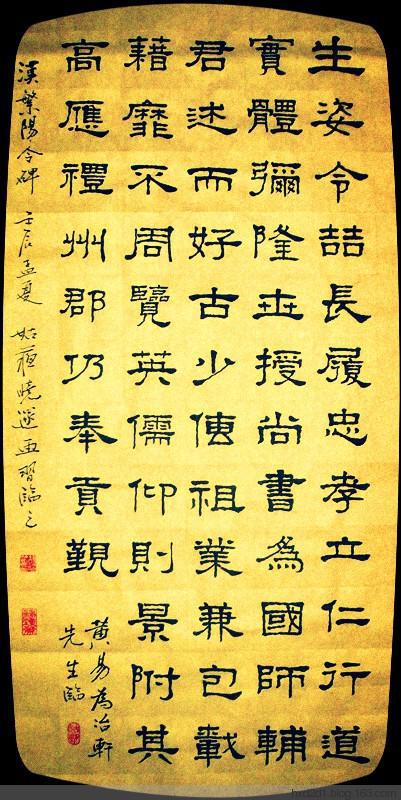 生姿令喆長履忠孝立仁行道
實體彌隆世授尚書為國師輔
君述而好古少傳祖業兼包載
藉靡不周覽英儒仰則景附其
高應禮州郡仍奉貢覲
黃易為冶軒
先生臨
漢繁陽令碑 壬辰孟夏 姑蘇曉 習臨之